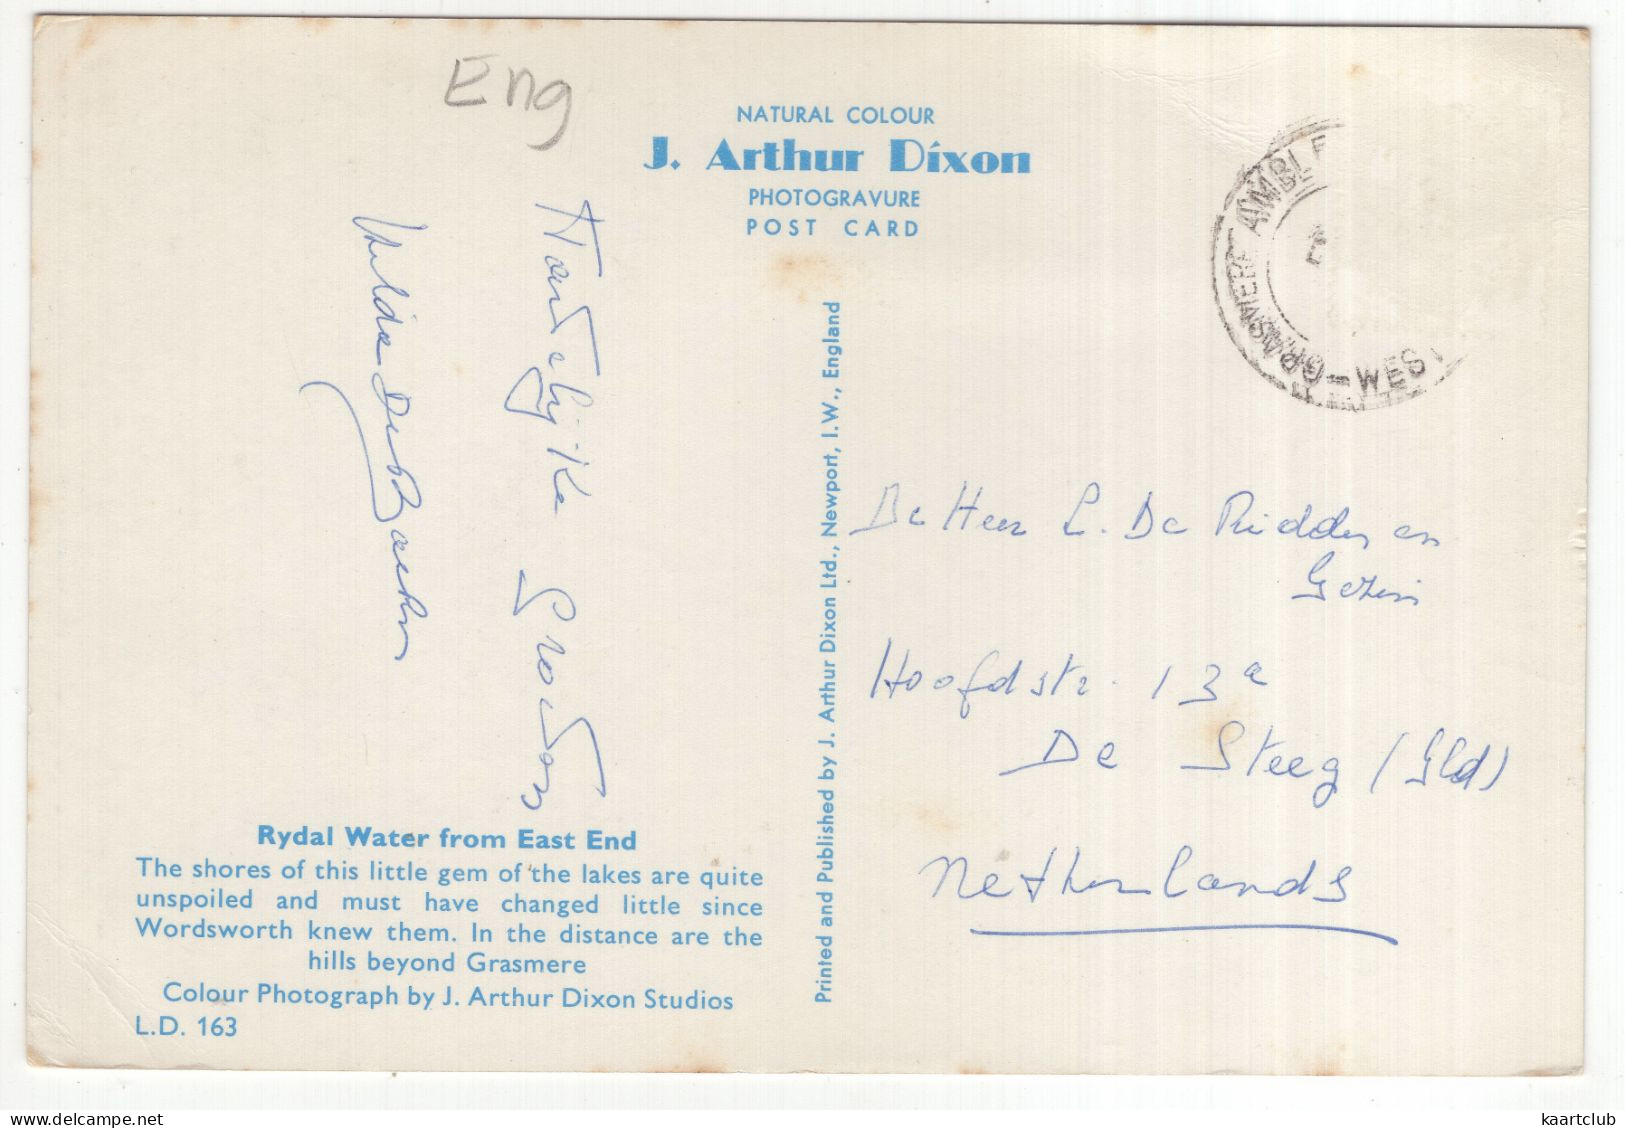 Eng
NATURAL COLOUR
J. Arthur Dixon
PHOTOGRAVURE
POST CARD
Hartelijke groeten
Printed and Published by J. Arthur Dixon Ltd., Newport, I.W., England
GRASMERE AMBLE
WES
De Heer L. De Ridder en
Gezin
Hoofdstr. 13a
De Steeg (Gld)
Netherlands
Rydal Water from East End
The shores of this little gem of the lakes are quite
unspoiled and must have changed little since
Wordsworth knew them. In the distance are the
hills beyond Grasmere
Colour Photograph by J. Arthur Dixon Studios
L.D. 163
delcampe.net
kaartclub